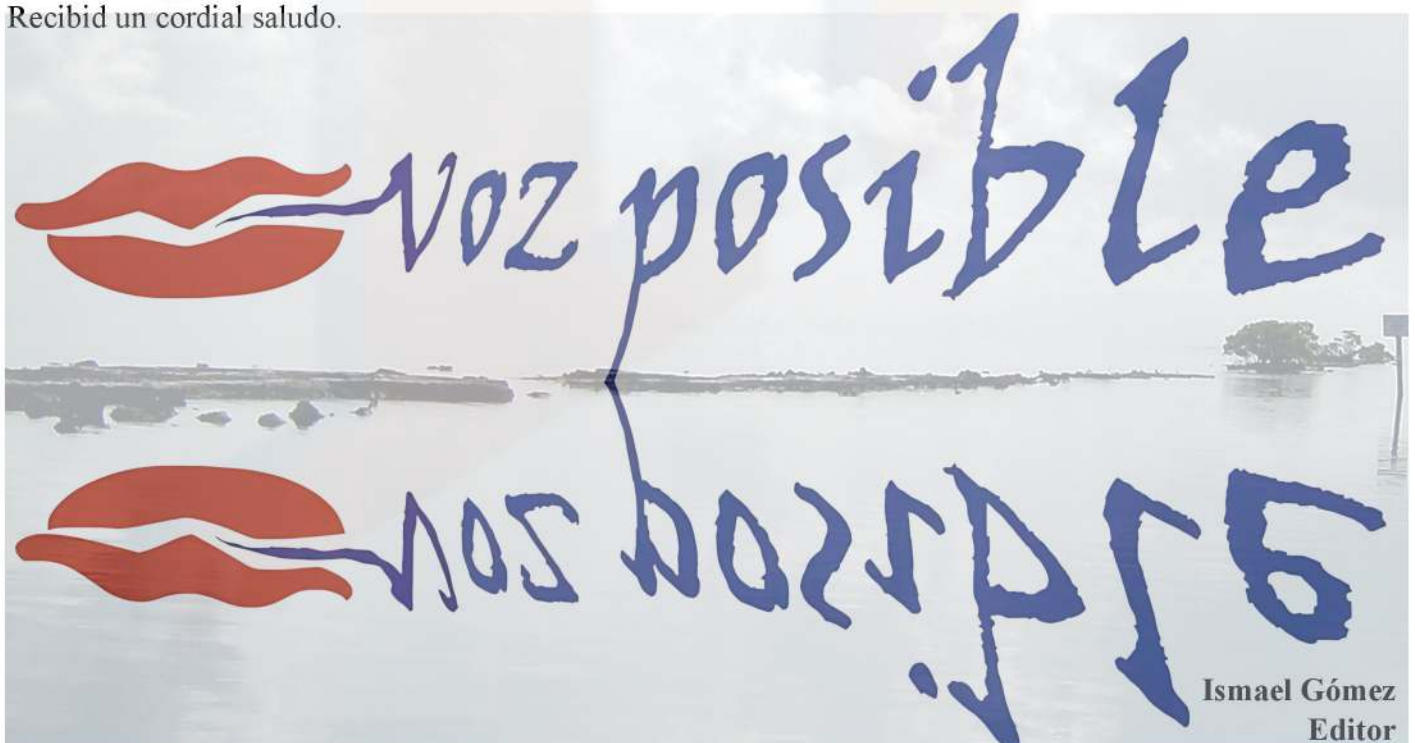 Recibid un cordial saludo.
voz posible
voz posible
Ismael Gómez
Editor